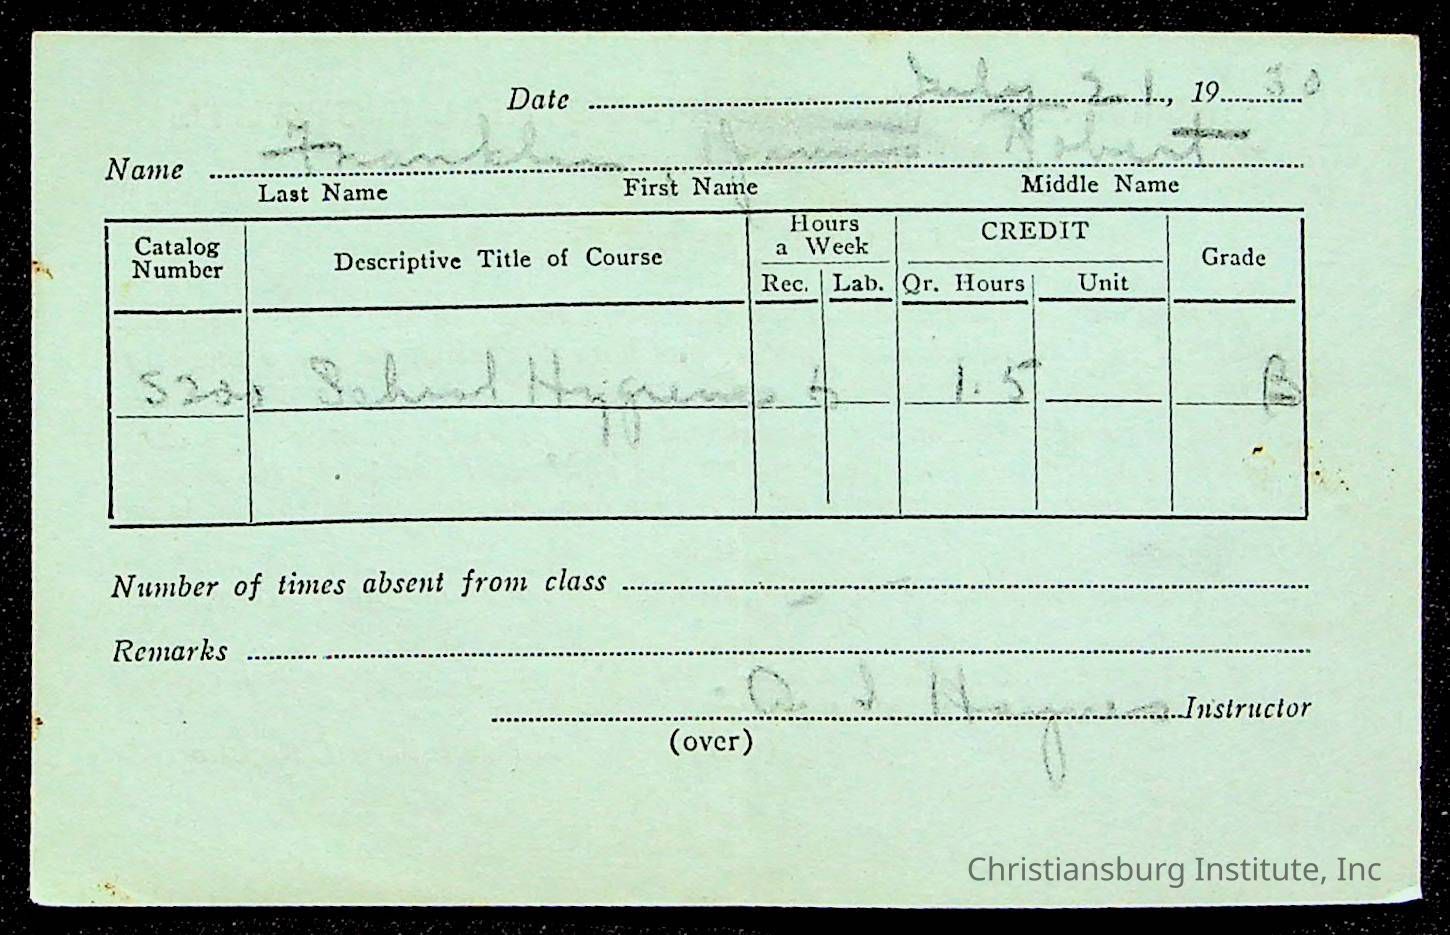 Date July 21, 1930
Name Franklin Robert
Last Name First Name Middle Name
Catalog Number Descriptive Title of Course Hours a Week Rec. Lab. CREDIT Qr. Hours Unit Grade
School Hygiene 1.5 B
Number of times absent from class
Remarks
Instructor
(over)
Christiansburg Institute, Inc